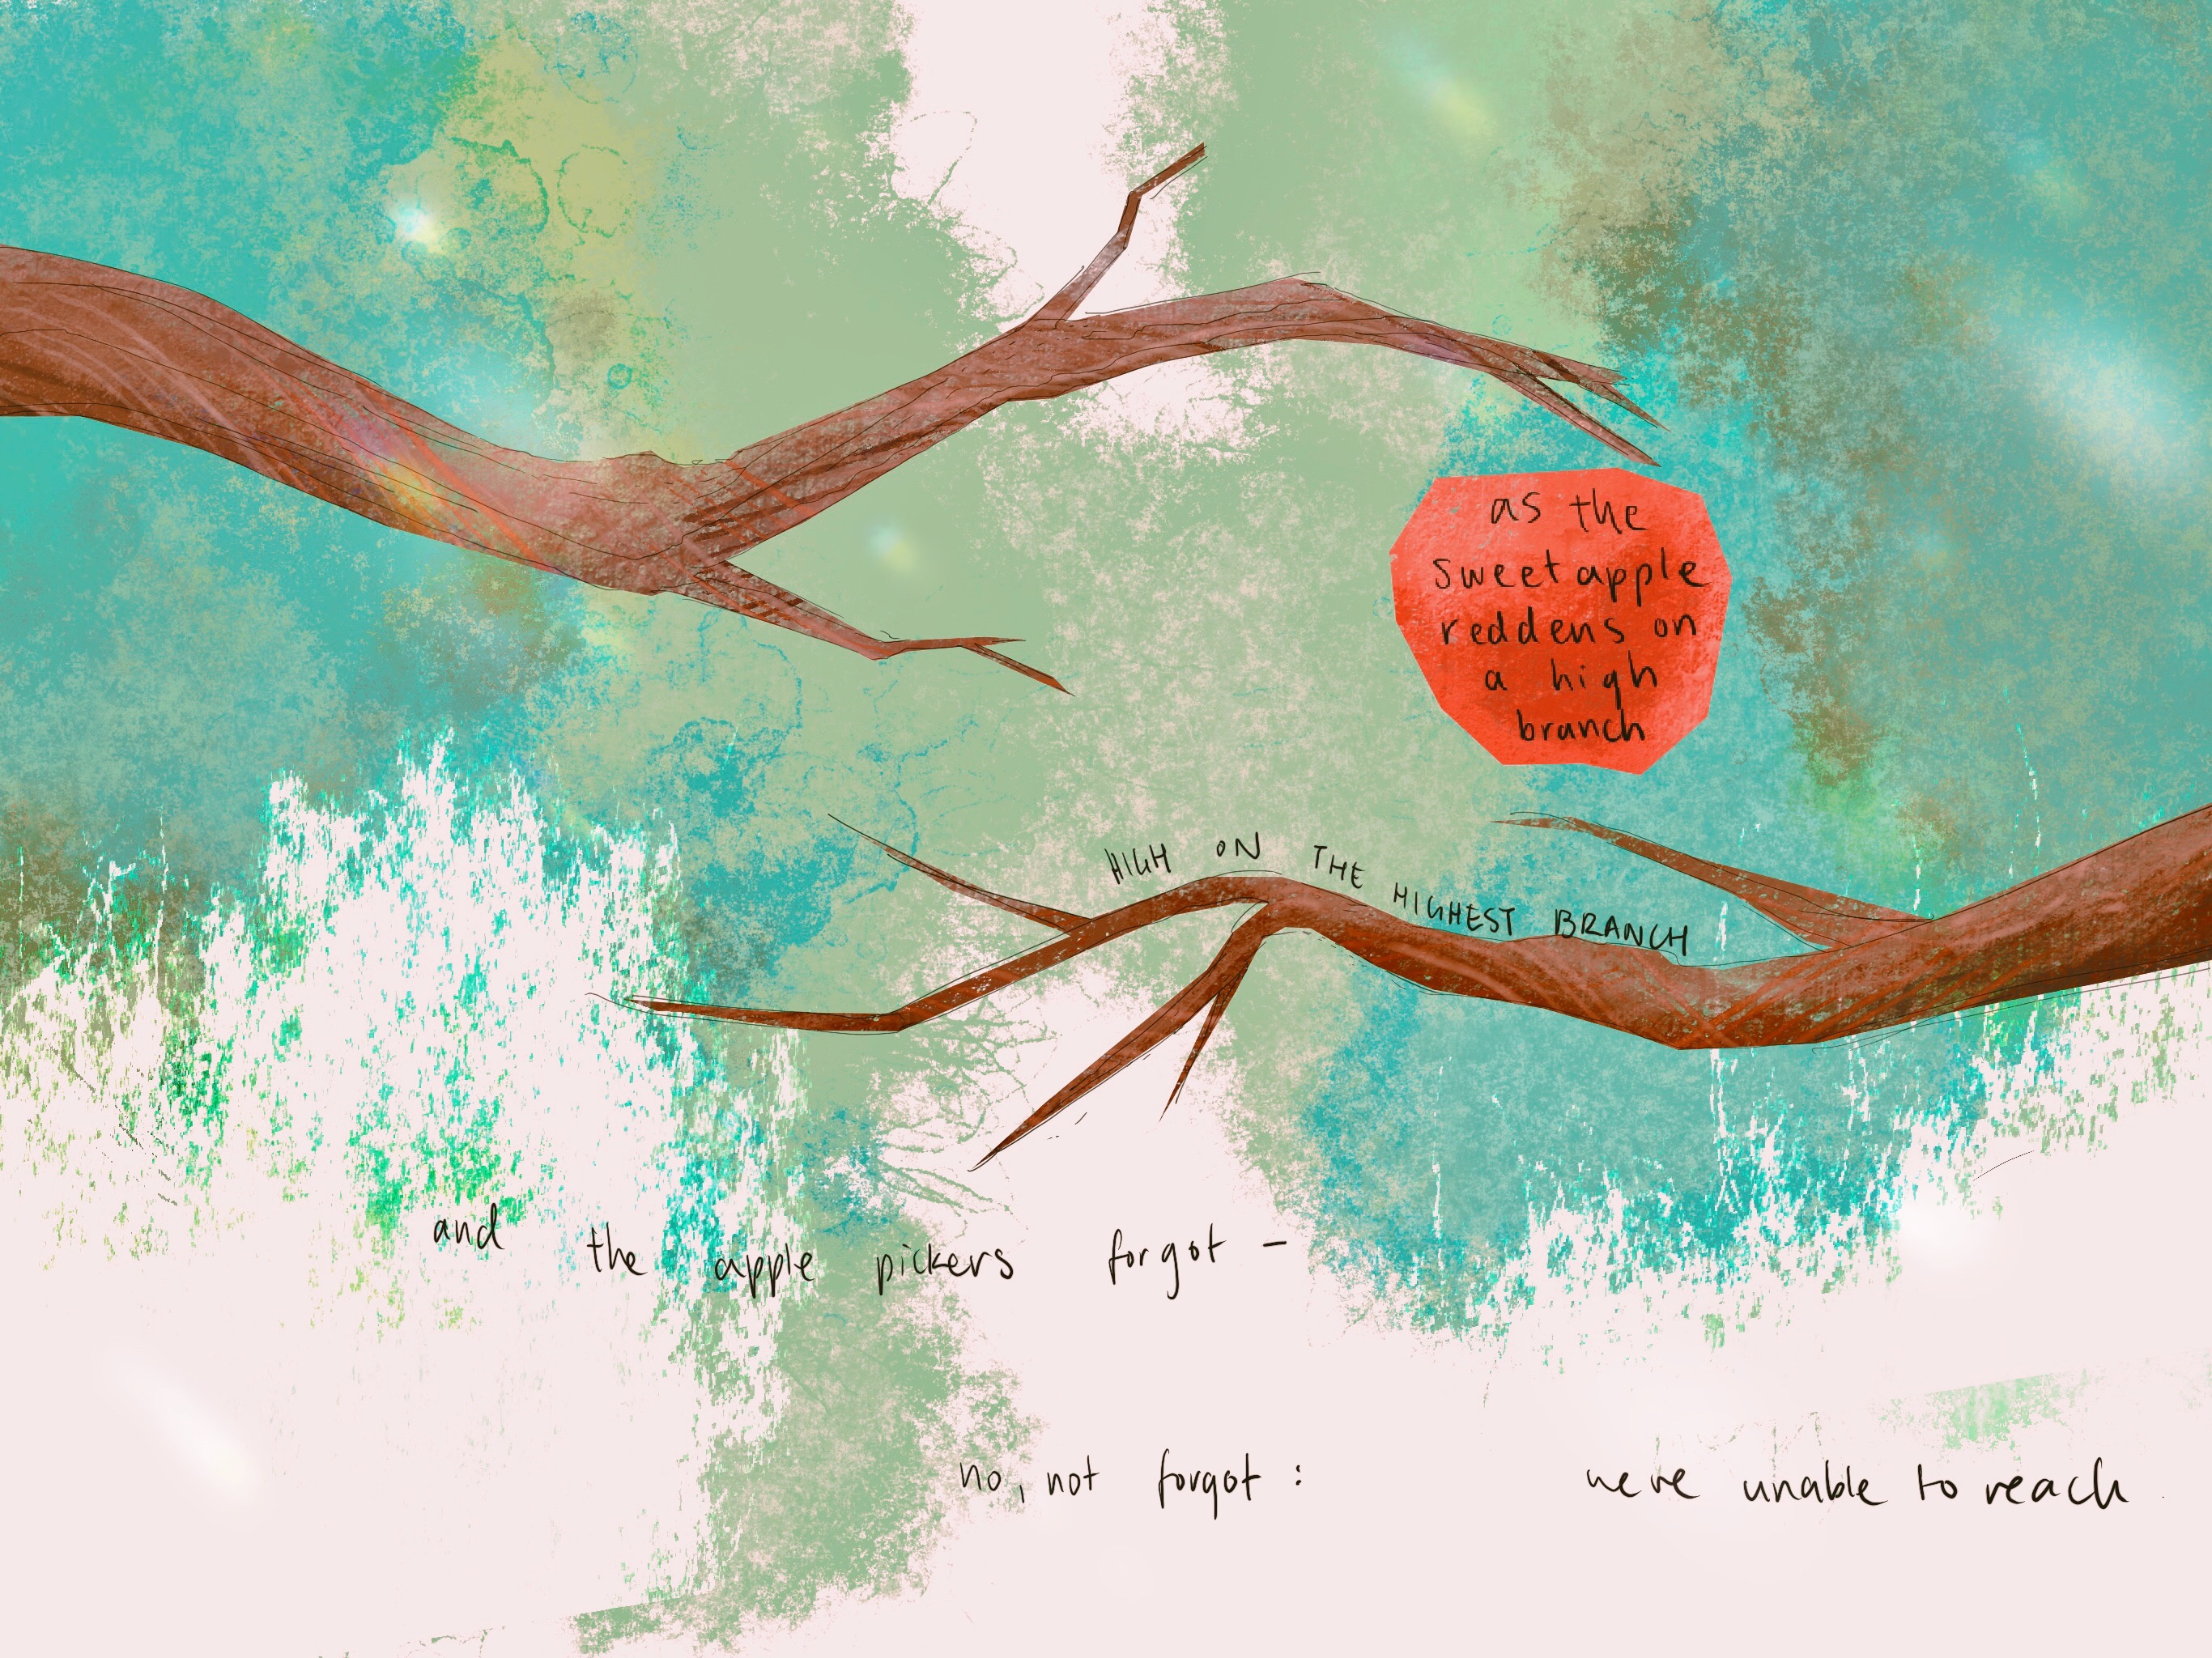 as the
sweetapple
reddens on
a high
branch
HIGH ON THE HIGHEST BRANCH
and the apple pickers forgot -
no, not forgot: were unable to reach